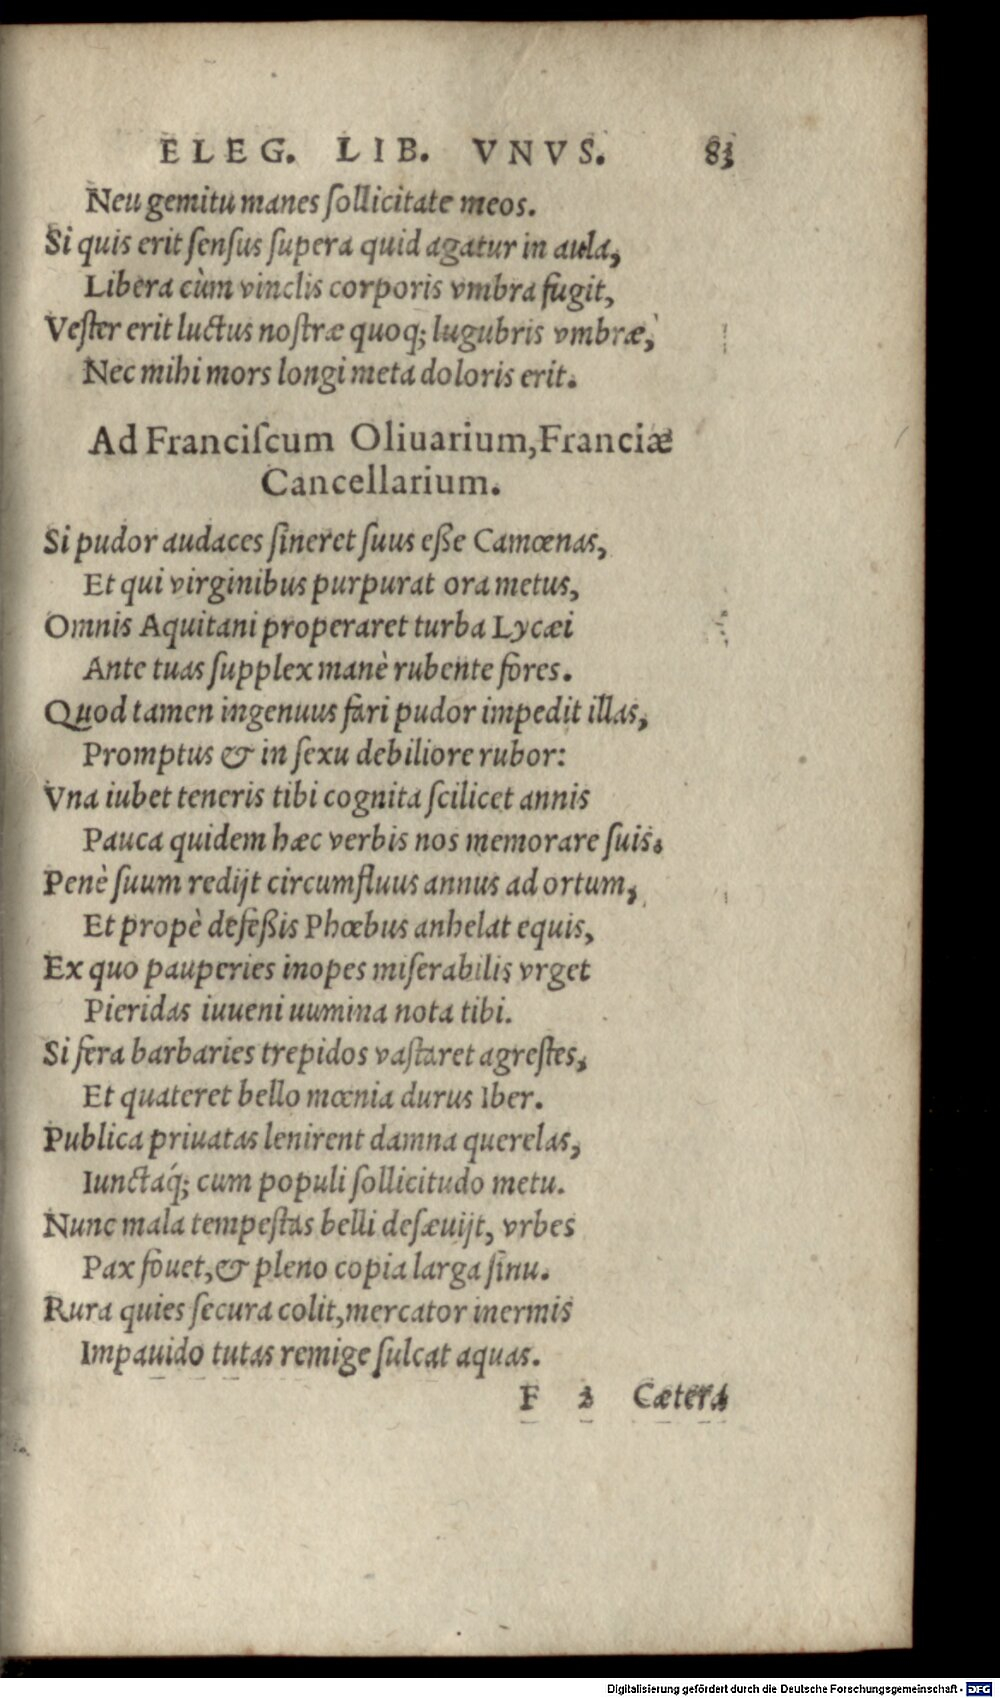 ELEG. LIB. VNVS. 83
Neu gemitu manes ſollicitate meos.
Si quis erit ſenſus ſupera quid agatur in aula,
Libera cùm vinclis corporis vmbra fugit,
Veſter erit luctus noſtræ quoq; lugubris vmbræ,
Nec mihi mors longi meta doloris erit.
Ad Franciſcum Oliuarium, Franciæ
Cancellarium.
Si pudor audaces ſineret ſuus eſſe Camœnas,
Et qui virginibus purpurat ora metus,
Omnis Aquitani properaret turba Lycæi
Ante tuas ſupplex manè rubente fores.
Quod tamen ingenuus fari pudor impedit illas,
Promptus & in ſexu debiliore rubor:
Vna iubet teneris tibi cognita ſcilicet annis
Pauca quidem hæc verbis nos memorare ſuis.
Penè ſuum redijt circumfluus annus ad ortum,
Et propè defeßis Phœbus anhelat equis,
Ex quo pauperies inopes miſerabilis vrget
Pieridas iuueni uumina nota tibi.
Si fera barbaries trepidos vaſtaret agreſtes,
Et quateret bello mœnia durus Iber.
Publica priuatas lenirent damna querelas,
Iunctaq́; cum populi ſollicitudo metu.
Nunc mala tempeſtas belli deſæuijt, vrbes
Pax fouet, & pleno copia larga ſinu.
Rura quies ſecura colit, mercator inermis
Impauido tutas remige ſulcat aquas.
F 2 Cætera
Digitalisierung gefördert durch die Deutsche Forschungsgemeinschaft - DFG